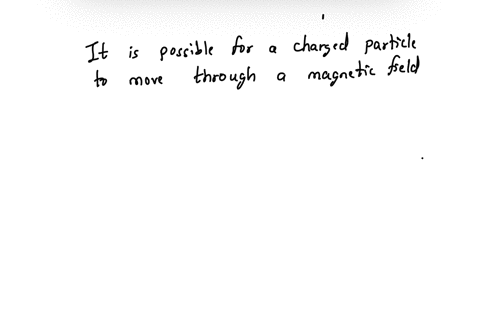 It is possible for a charged particle
to move through a magnetic field